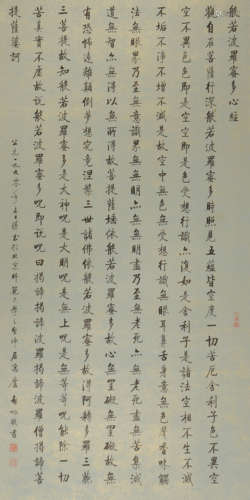 般若波羅蜜多心經
觀自在菩薩行深般若波羅蜜多時照見五蘊皆空度一切苦厄舍利子色不異空
空不異色色即是空空即是色受想行識亦復如是舍利子是諸法空相不生不滅
不垢不淨不增不減是故空中無色無受想行識無眼耳鼻舌身意無色聲香味觸
法無眼界乃至無意識界無無明亦無無明盡乃至無老死亦無老死盡無苦集滅
道無智亦無得以無所得故菩提薩埵依般若波羅蜜多故心無罣礙無罣礙故無
有恐怖遠離顛倒夢想究竟涅槃三世諸佛依般若波羅蜜多故得阿耨多羅三藐
三菩提故知般若波羅蜜多是大神咒是大明咒是無上咒是無等等咒能除一切
苦真實不虛故說般若波羅蜜多咒即說咒曰揭諦揭諦波羅揭諦波羅僧揭諦菩
提薩婆訶